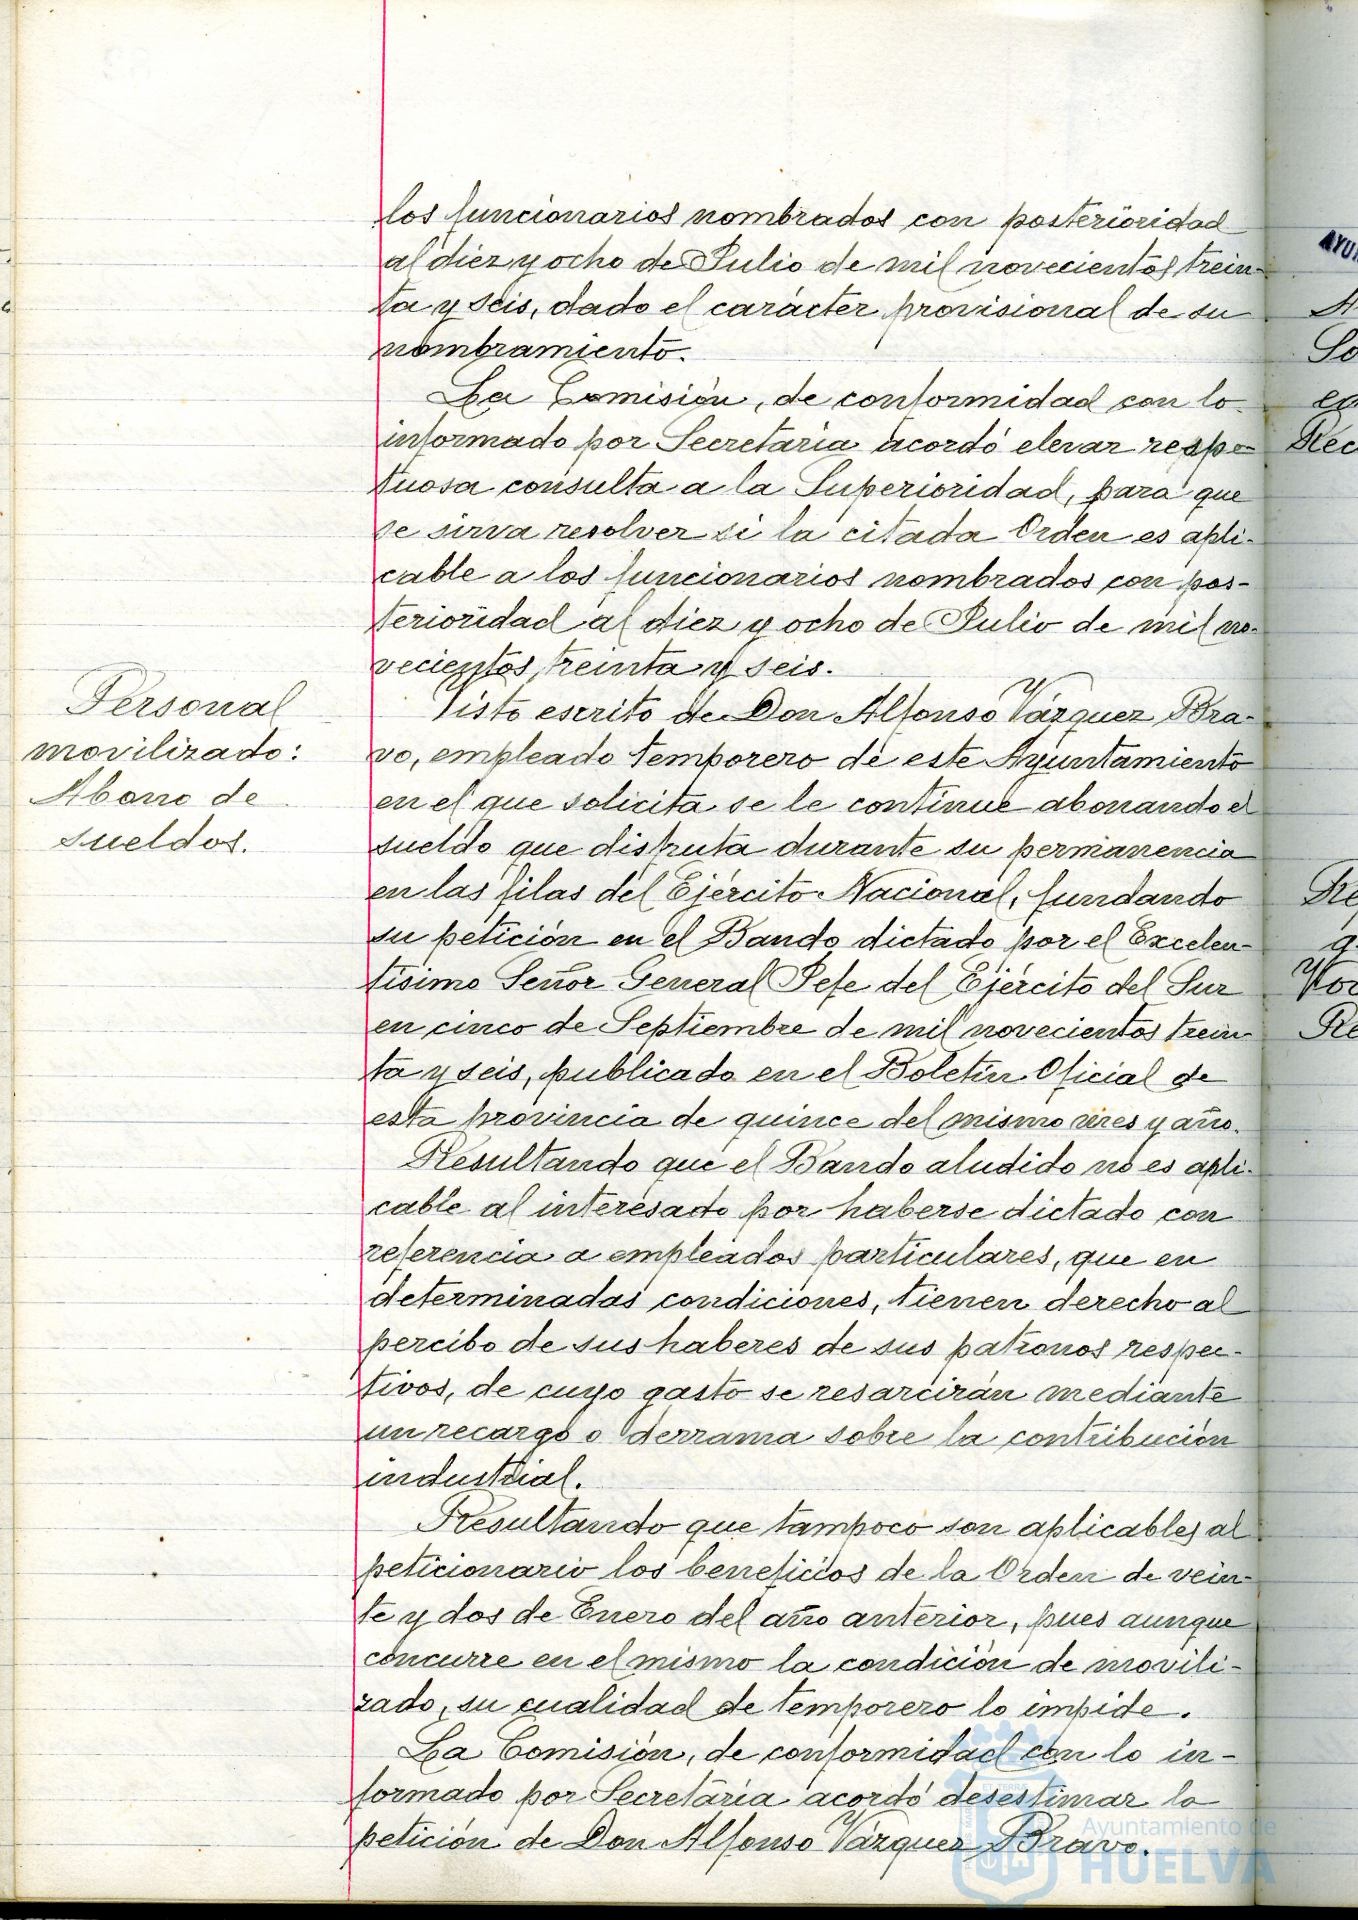 los funcionarios nombrados con posterioridad
al diez y ocho de Julio de mil novecientos trein-
ta y seis, dado el carácter provisional de su
nombramiento.
La Comisión, de conformidad con lo
informado por Secretaría acordó elevar respe-
tuosa consulta a la Superioridad, para que
se sirva resolver si la citada Orden es apli-
cable a los funcionarios nombrados con pos-
terioridad al diez y ocho de Julio de mil no-
vecientos treinta y seis.
Personal
movilizado:
Abono de
sueldos.
Visto escrito de Don Alfonso Vázquez Bra-
vo, empleado temporero de este Ayuntamiento
en el que solicita se le continue abonando el
sueldo que disfruta durante su permanencia
en las filas del Ejército Nacional, fundando
su petición en el Bando dictado por el Excelen-
tísimo Señor General Jefe del Ejército del Sur
en cinco de Septiembre de mil novecientos trein-
ta y seis, publicado en el Boletín Oficial de
esta provincia de quince del mismo mes y año.
Resultando que el Bando aludido no es apli-
cable al interesado por haberse dictado con
referencia a empleados particulares, que en
determinadas condiciones, tienen derecho al
percibo de sus haberes de sus patronos respec-
tivos, de cuyo gasto se resarcirán mediante
un recargo o derrama sobre la contribución
industrial.
Resultando que tampoco son aplicables al
peticionario los beneficios de la Orden de vein-
te y dos de Enero del año anterior, pues aunque
concurre en el mismo la condición de movili-
zado, su cualidad de temporero lo impide.
La Comisión, de conformidad con lo in-
formado por Secretaría acordó desestimar la
petición de Don Alfonso Vázquez Bravo.
Ayuntamiento de
HUELVA